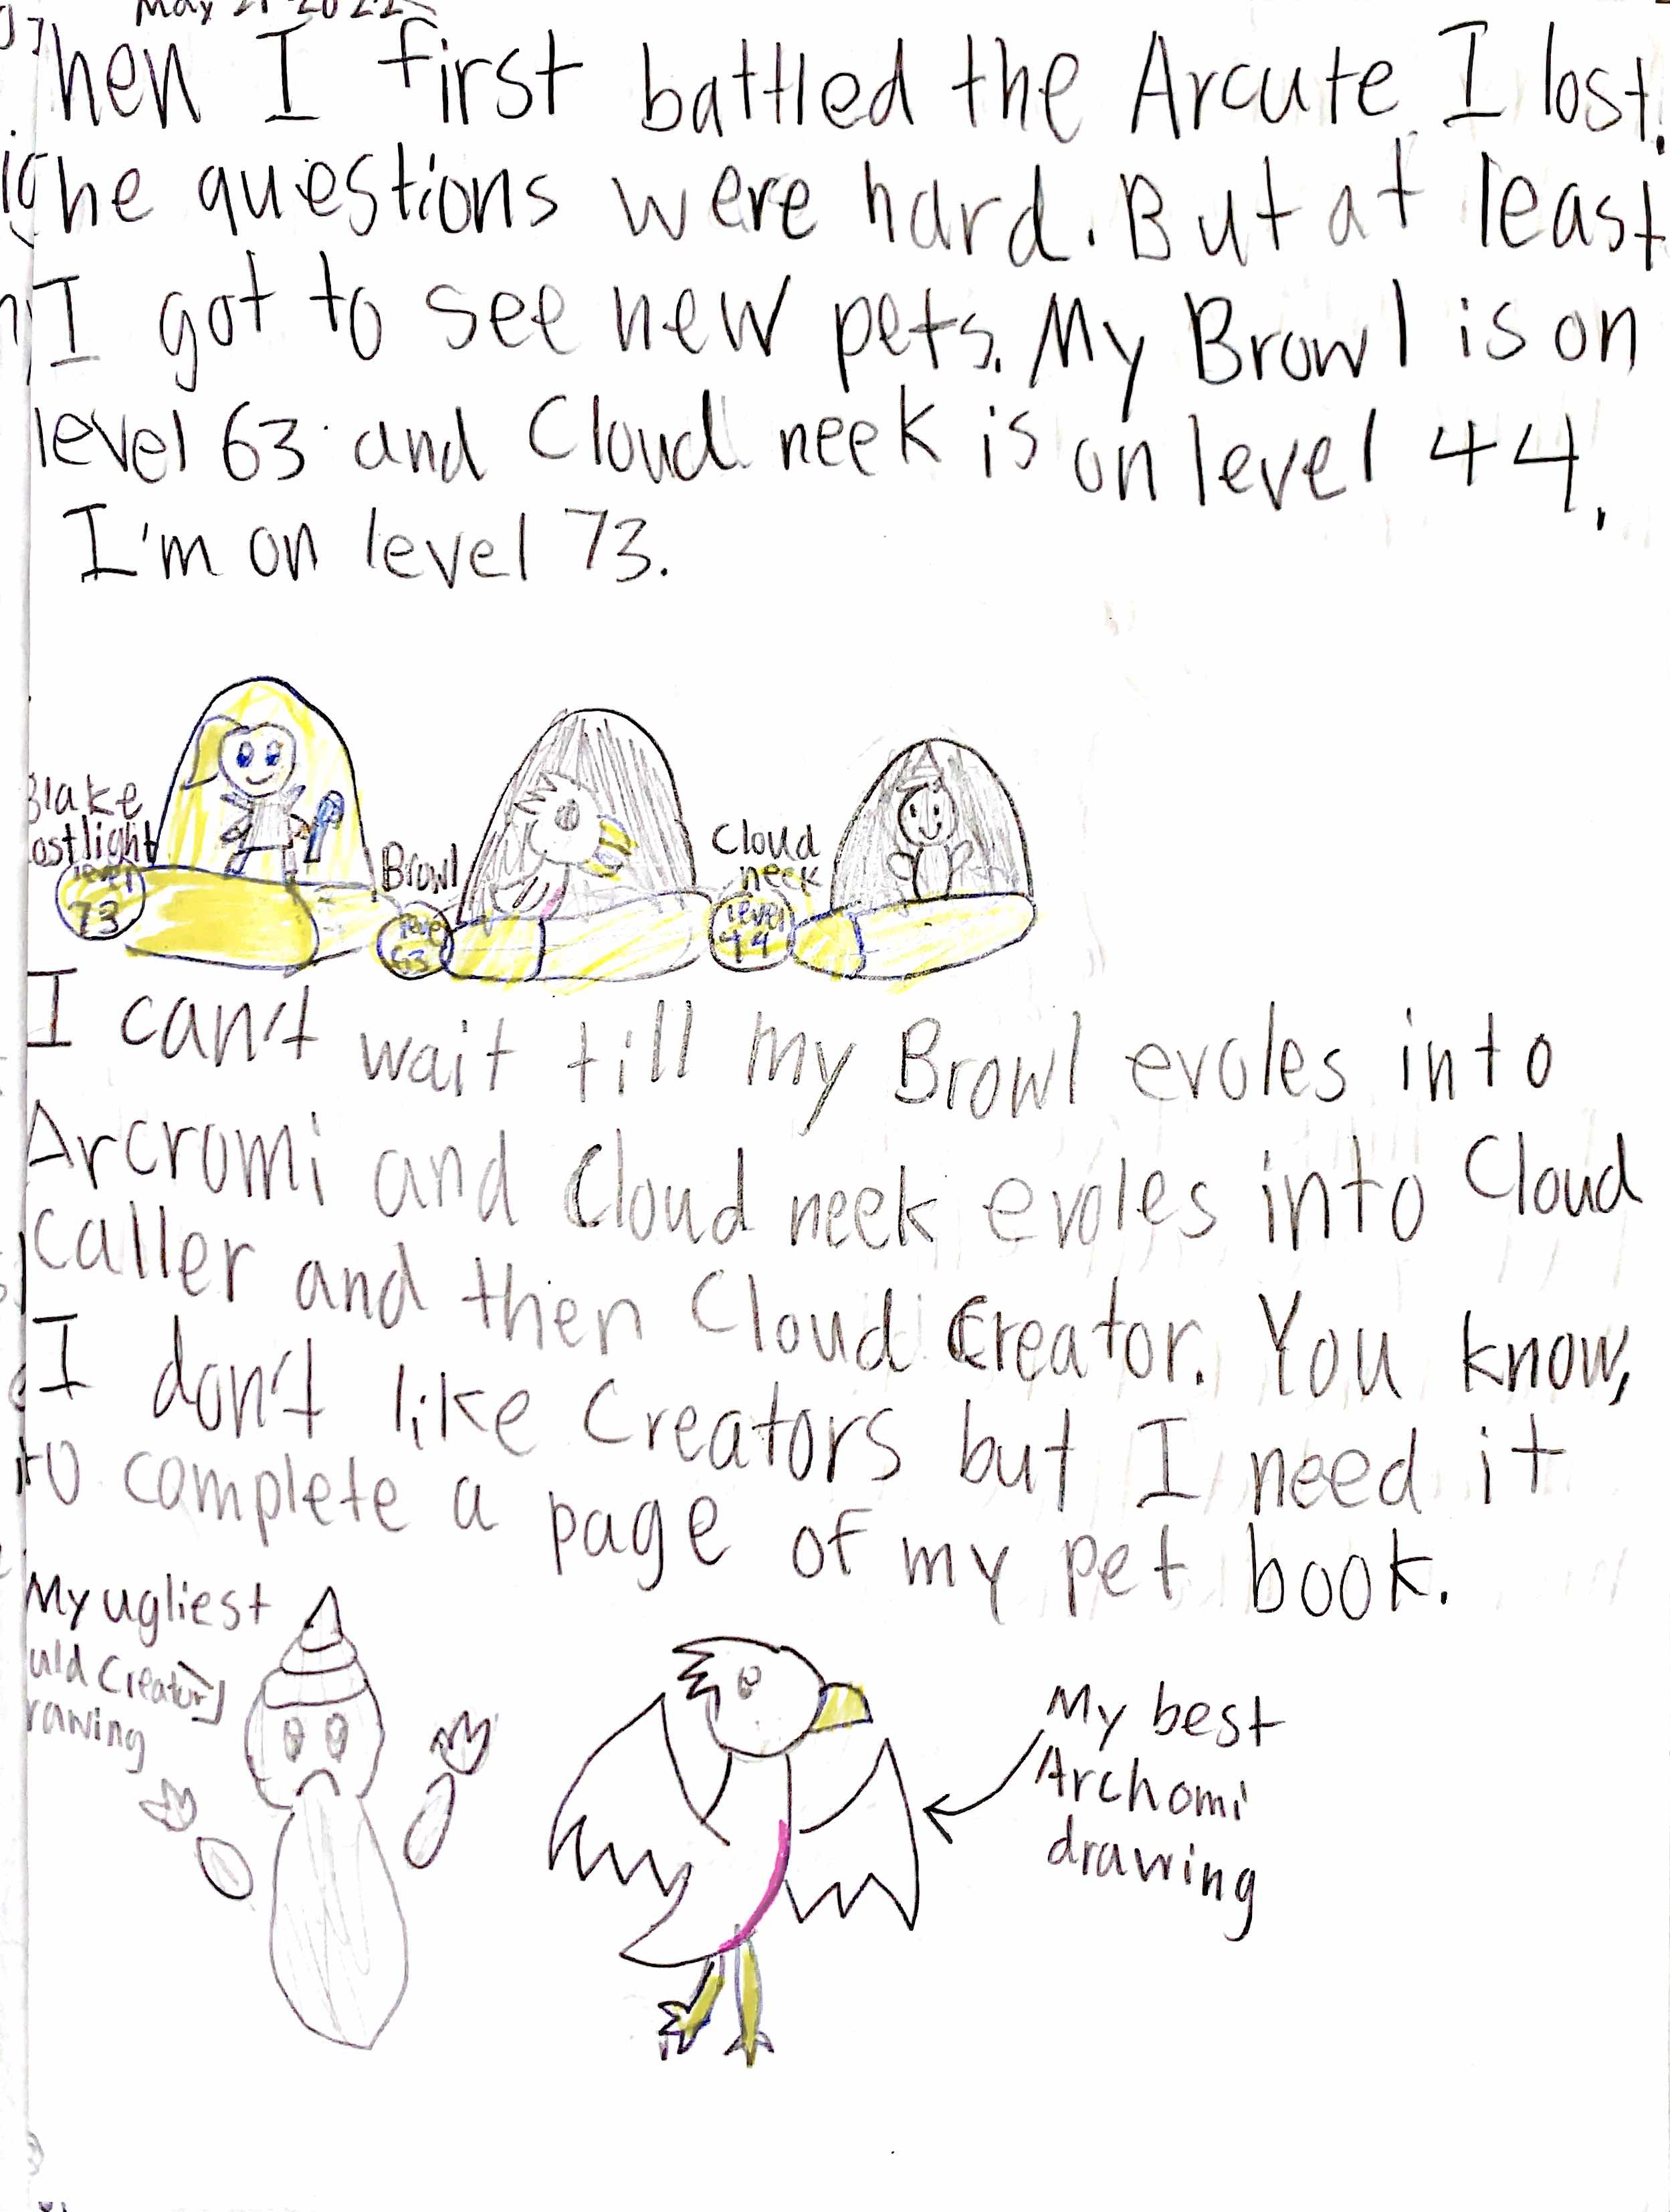 May 21 2022
hen I first battled the Arcute I lost.
he questions were hard. But at least
I got to see new pets. My Browl is on
level 63 and Cloud neek is on level 44.
I'm on level 73.
Blake
ostlight
level
73
Browl
level
63
Cloud
neek
level
44
I can't wait till my Browl evoles into
Arcromi and Cloud neek evoles into Cloud
Caller and then Cloud Creator. You know,
I don't like Creators but I need it
to complete a page of my pet book.
My ugliest
uld Creator
rawing
My best
Archomi
drawing